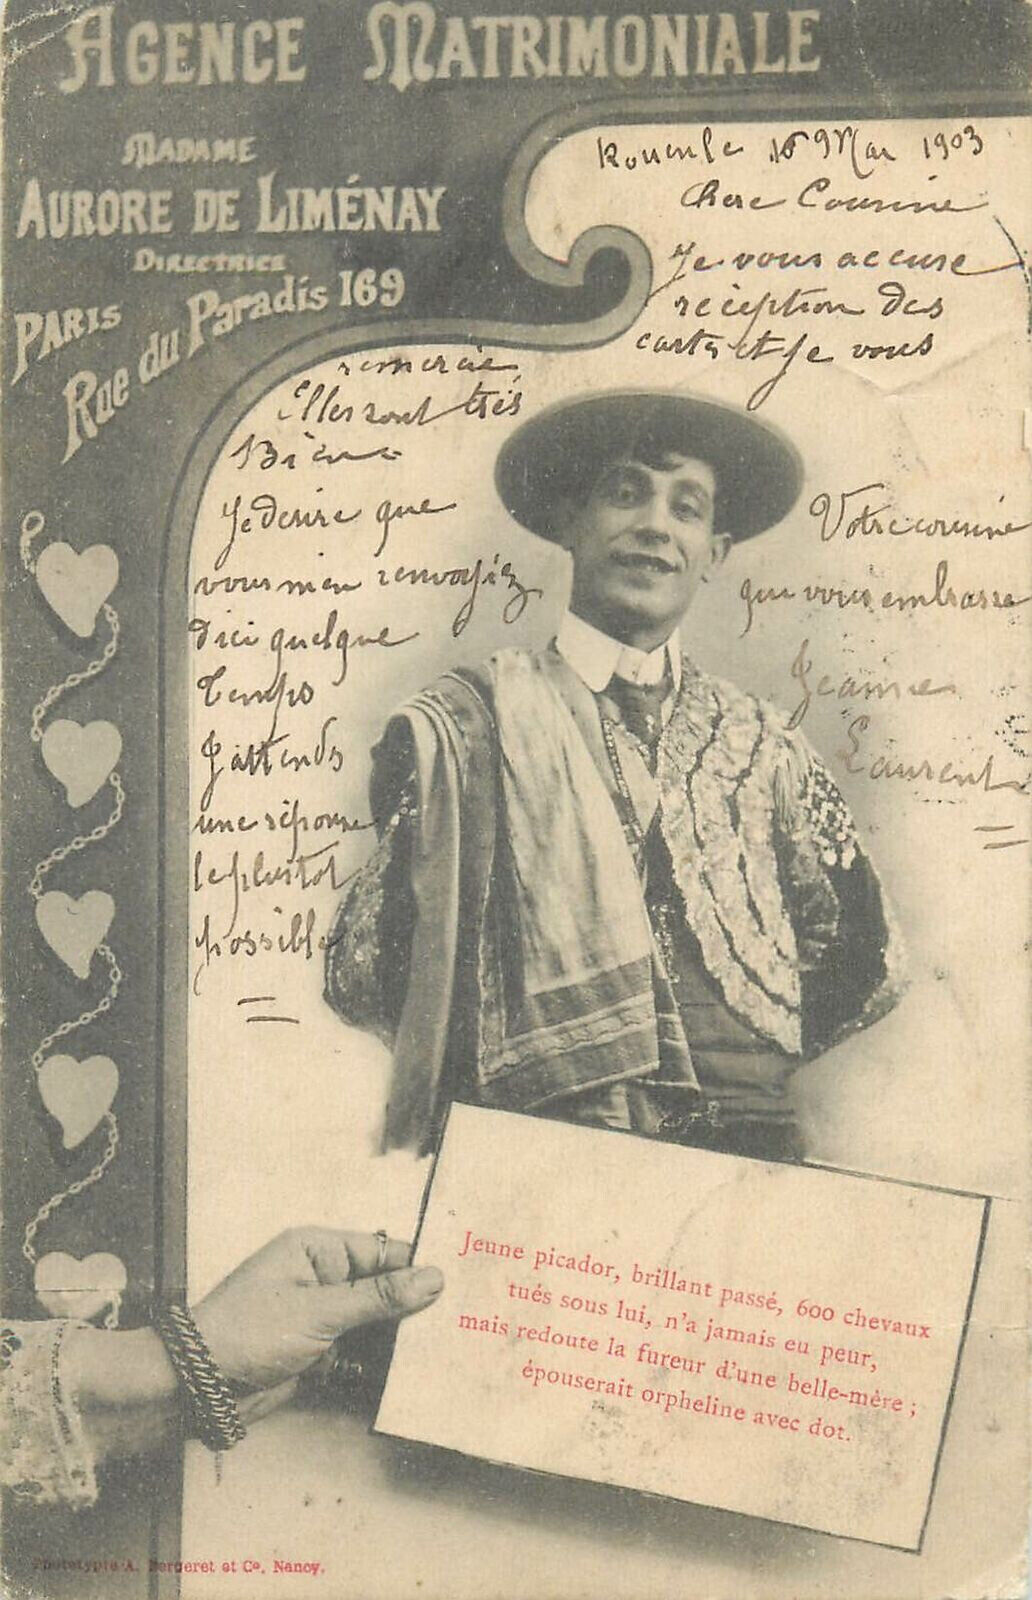 AGENCE MATRIMONIALE
MADAME
AURORE DE LIMÉNAY
DIRECTRICE
PARIS
Rue du Paradis 169
1903
Chere Cousine
Je vous accuse
reception des
cartes et je vous
remercie
Elles sont très
Bien
Je desire que
vous men renvoyiez
dici quelque
Temps
Jattends
une réponse
le plustot
possible
Votre cousine
qui vous embrasse
Jeanne
Laurent
Jeune picador, brillant passé, 600 chevaux
tués sous lui, n'a jamais eu peur,
mais redoute la fureur d'une belle-mère ;
épouserait orpheline avec dot.
Phototypie A. Bergeret et Cie, Nancy.